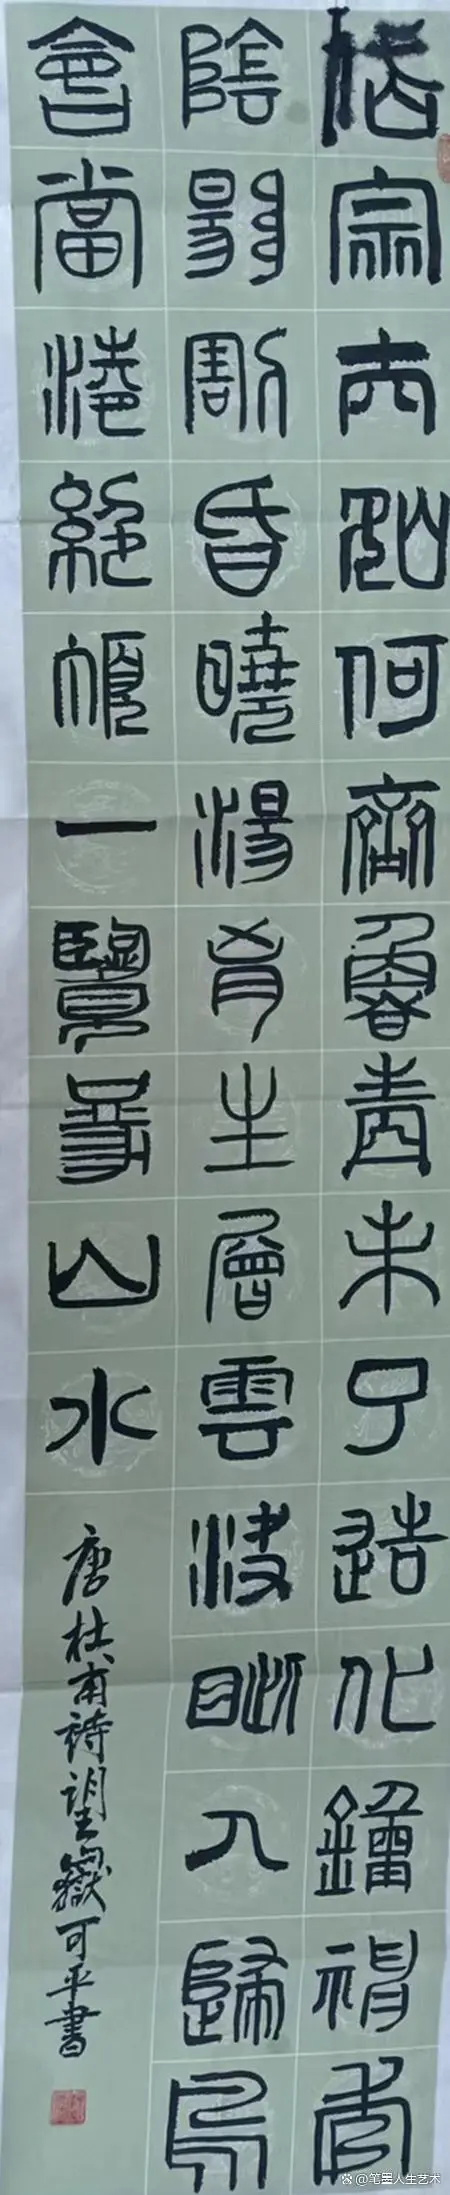 岱宗夫如何齊魯青未了造化鍾神秀
陰陽割昏曉湯胷生層雲決眦入歸鳥
會當淩絕頂一覽眾山小
唐杜甫詩望嶽可平書
笔墨人生艺术